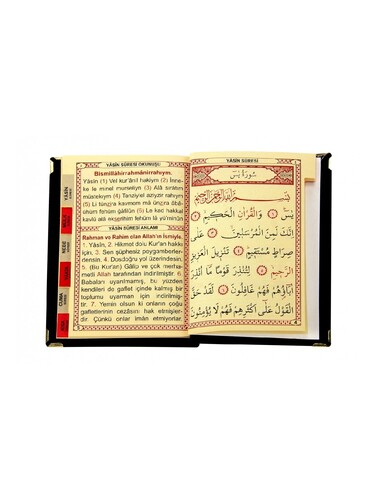 YÂSÎN SÛRESİ OKUNUŞU
Bismillâhirrahmânirrahıym.
Yâsîn (1) Vel kur'ânil hakiym (2) İnne-
ke le minel murseliyn (3) Alâ sırâtım
müstekıym (4) Tenziylel aziyzirrahiym
(5) Li tünzira kavmem mâ ünzira âbâ-
ühüm fehüm ğâfilûn (6) Le kad hakkal
kavlü alâ ekserihim fehüm lâ yü'minûn
YÂSÎN SÛRESİ ANLAMI
Rahman ve Rahîm olan Allah'ın İsmiyle.
1. Yâsîn, 2. Hikmet dolu Kur'an hakkı
için, 3. Sen şüphesiz peygamberler-
densin. 4. Dosdoğru yol üzerindesin.
5. (Bu Kur'an) Gâlip ve çok merha-
metli Allah tarafından indirilmiştir 6.
Babaları uyarılmamış, bu yüzden
kendileri de gaflet içinde kalmış bir
toplumu uyarman için indirilmiş-
tir. 7. Yemin olsun ki onların çoğu
gafletlerinin cezasını hak etmişler-
dir. Çünkü onlar iman etmiyorlar.
YÂSİN
NEBE
CUMA
YÂSÎN SÛRESİ
سُورَةُ يٰسٓ
بِسْمِ اللّٰهِ الرَّحْمٰنِ الرَّحِيمِ
يٰسٓ ١ وَالْقُرْاٰنِ الْحَكِيمِ ٢
اِنَّكَ لَمِنَ الْمُرْسَلِينَ ٣ عَلٰى
صِرَاطٍ مُسْتَقِيمٍ ٤ تَنْزِيلَ الْعَزِيزِ
الرَّحِيمِ ٥ لِتُنْذِرَ قَوْمًا مَا اُنْذِرَ
اٰبَاۤؤُهُمْ فَهُمْ غَافِلُونَ ٦ لَقَدْ حَقَّ
الْقَوْلُ عَلٰۤى اَكْثَرِهِمْ فَهُمْ لَا يُؤْمِنُونَ